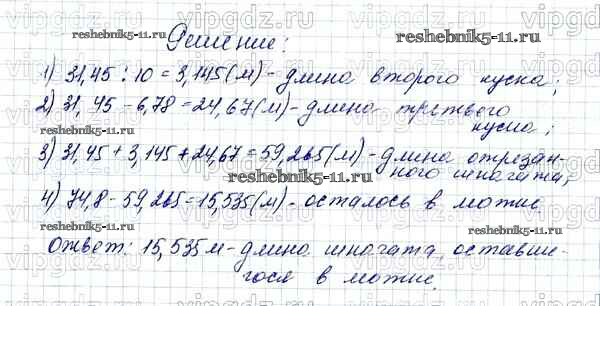 Решение:
1) 31,45 : 10 = 3,145 (м) - длина второго куска;
2) 31,45 - 6,78 = 24,67 (м) - длина третьего
куска;
3) 31,45 + 3,145 + 24,67 = 59,265 (м) - длина отрезан-
ного шпагата;
4) 74,8 - 59,265 = 15,535 (м) - осталось в мотке
Ответ: 15,535 м - длина шпагата, оставше-
гося в мотке.
reshebnik5-11.ru
reshebnik5-11.ru
reshebnik5-11.ru
reshebnik5-11.ru
reshebnik5-11.ru
reshebnik5-11.ru
vipgdz.ru